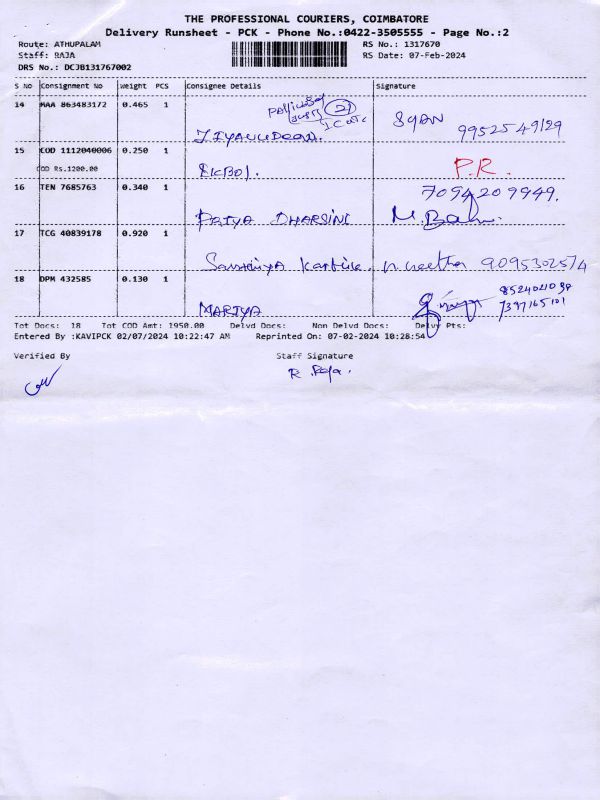 THE PROFESSIONAL COURIERS, COIMBATORE
Delivery Runsheet - PCK - Phone No.:0422-3505555 - Page No.:2
Route: ATHUPALAM RS No.: 1317670
Staff: RAJA RS Date: 07-Feb-2024
DRS No.: DCJB131767002
S No Consignment No Weight PCS Consignee Details Signature
14 MAA 863483172 0.465 1 9952549129
15 COD 1112040006 0.250 1 P.R.
COD Rs.1200.00
16 TEN 7685763 0.340 1 7094209949.
PRIYA DHARSINI
17 TCG 40839178 0.920 1
9095302574
18 DPM 432585 0.130 1
7397165101
Tot Docs: 18 Tot COD Amt: 1950.00 Delvd Docs: Non Delvd Docs: Delvy Pts:
Entered By :KAVIPCK 02/07/2024 10:22:47 AM Reprinted On: 07-02-2024 10:28:54
Verified By Staff Signature
R. Raja.